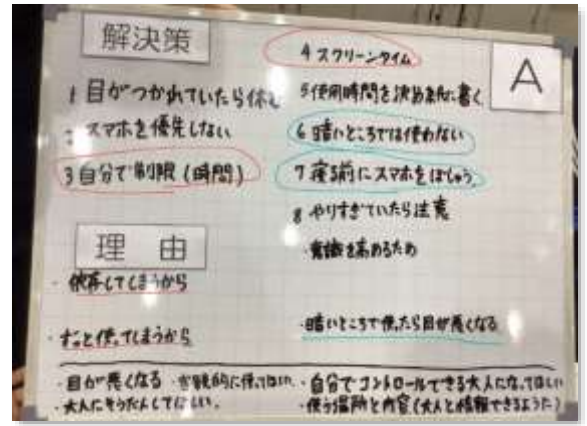 解決策
A
1 目がつかれていたら休む
2 スマホを優先しない
3 自分で制限(時間)
4 スクリーンタイム
5 使用時間を決め紙に書く
6 暗いところでは使わない
7 寝る前にスマホを
8 やりすぎていたら注意
・意識を高めるため
理由
・依存してしまうから
・ずっと使ってしまうから
・暗いところで使ったら目が悪くなる
・目が悪くなる
・大人にそうだんしてほしい。
・自分でコントロールできる大人になってほしい
・使う場所と内容(大人と できるように)